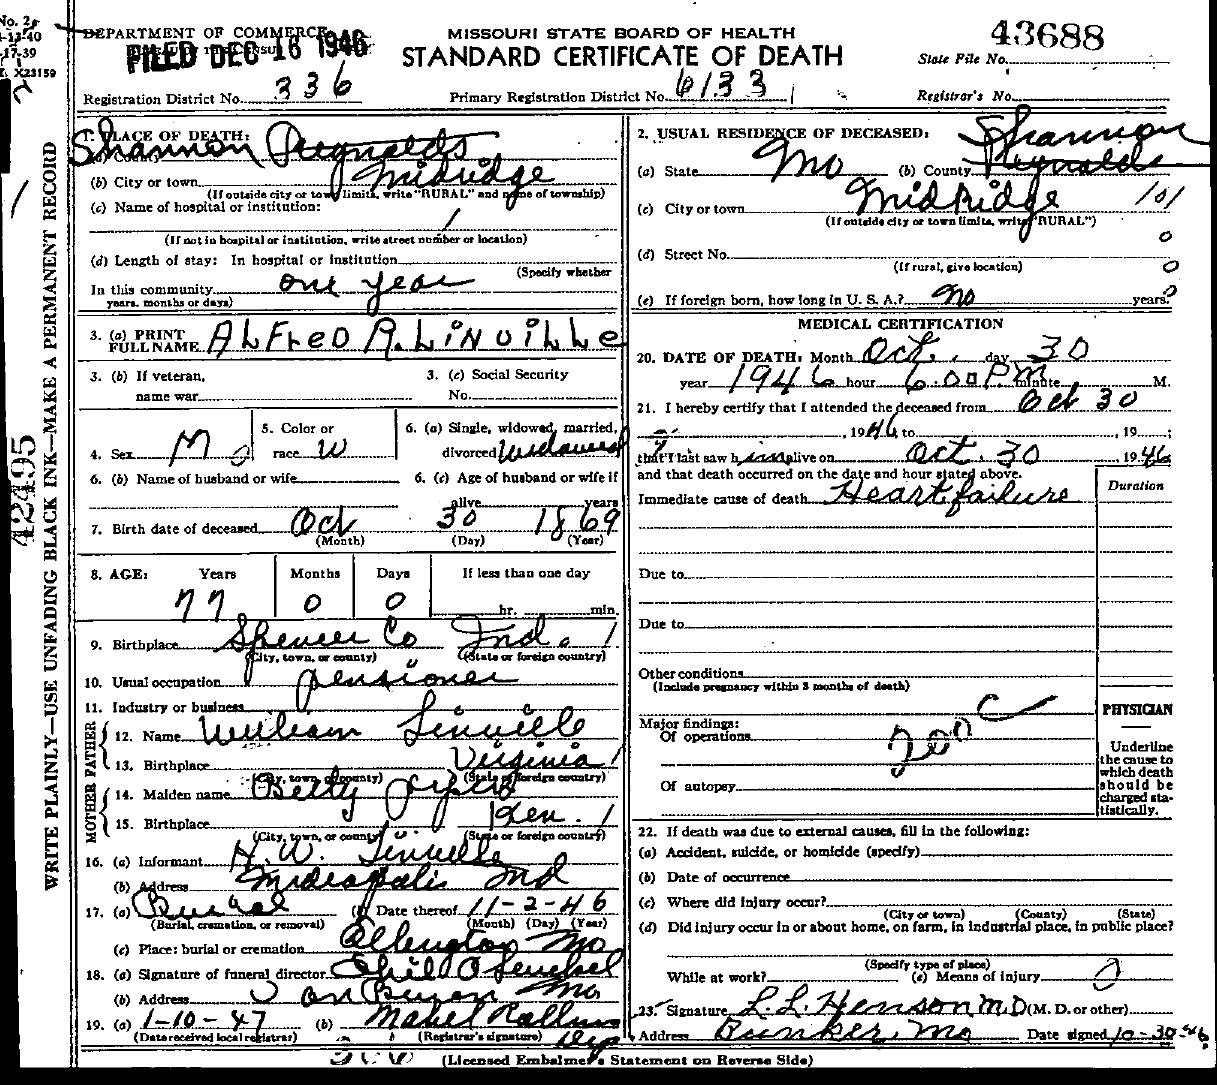 No. 2
-13-40
-17-39
X23159
DEPARTMENT OF COMMERCE
FILED DEC 16 1946
MISSOURI STATE BOARD OF HEALTH
STANDARD CERTIFICATE OF DEATH
43688
State File No.
Registration District No. 336
Primary Registration District No. 6133
Registrar's No.
WRITE PLAINLY—USE UNFADING BLACK INK—MAKE A PERMANENT RECORD
42495
1. PLACE OF DEATH:
(a) County Shannon Reynolds
(b) City or town Midridge
(If outside city or town limits, write "RURAL" and name of township)
(c) Name of hospital or institution:
(If not in hospital or institution, write street number or location)
(d) Length of stay: In hospital or institution
(Specify whether
In this community one year
years, months or days)
3. (a) PRINT FULL NAME ALFRED A. LINVILLE
3. (b) If veteran, name war
3. (c) Social Security No.
4. Sex M
5. Color or race W
6. (a) Single, widowed, married, divorced Widowed
6. (b) Name of husband or wife
6. (c) Age of husband or wife if alive years
7. Birth date of deceased Oct 30 1869
(Month) (Day) (Year)
8. AGE: Years Months Days If less than one day
77 0 0 hr. min.
9. Birthplace Spencer Co Ind. 1
(City, town, or county) (State or foreign country)
10. Usual occupation pensioner
11. Industry or business
FATHER
12. Name William Linville
13. Birthplace Virginia 1
(City, town, or county) (State or foreign country)
MOTHER
14. Maiden name Betty
15. Birthplace Ken. 1
(City, town, or county) (State or foreign country)
16. (a) Informant H. W. Linville
(b) Address Indeapolis Ind
17. (a) Burial (b) Date thereof 11-2-46
(Burial, cremation, or removal) (Month) (Day) (Year)
(c) Place: burial or cremation Ellington Mo
18. (a) Signature of funeral director
(b) Address Van Buren Mo
19. (a) 1-10-47 (b) Mabel Rollins
(Date received local registrar) (Registrar's signature) Dep
2. USUAL RESIDENCE OF DECEASED:
(a) State Mo (b) County Shannon Reynolds
(c) City or town Midridge 101
(If outside city or town limits, write "RURAL")
(d) Street No. 0
(If rural, give location) 0
(e) If foreign born, how long in U. S. A.? no years. 0
MEDICAL CERTIFICATION
20. DATE OF DEATH: Month Oct. day 30
year 1946 hour 6:00 P.M. minute M.
21. I hereby certify that I attended the deceased from Oct 30
, 1946 to , 19 ;
that I last saw him alive on Oct. 30 1946
and that death occurred on the date and hour stated above.
Duration
Immediate cause of death Heart failure
Due to
Due to
Other conditions
(Include pregnancy within 3 months of death)
Major findings:
Of operations
200 c
Of autopsy
PHYSICIAN
Underline
the cause to
which death
should be
charged sta-
tistically.
22. If death was due to external causes, fill in the following:
(a) Accident, suicide, or homicide (specify)
(b) Date of occurrence
(c) Where did injury occur?
(City or town) (County) (State)
(d) Did injury occur in or about home, on farm, in industrial place, in public place?
(Specify type of place)
While at work? (e) Means of injury
23. Signature L. L. Henson M.D (M. D. or other)
Address Bunker, Mo Date signed 10-30-46
(Licensed Embalmer's Statement on Reverse Side)